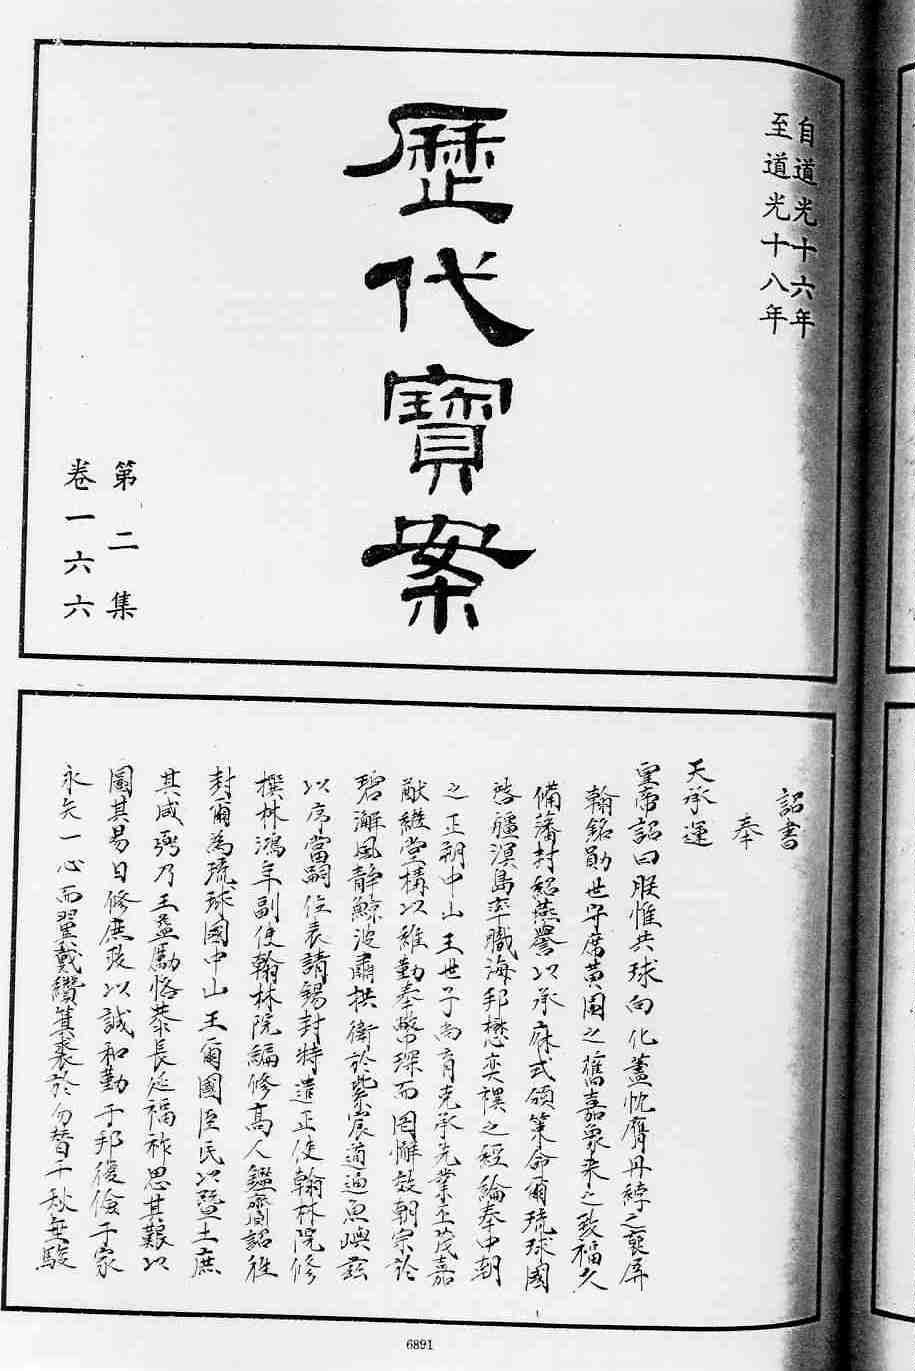 自道光十六年
至道光十八年
歷代寶案
第二集
卷一六六
詔書
奉
天承運
皇帝詔曰朕惟共球向化藎忱膺丹綍之褒屏
翰銘勛世守席黃圖之舊嘉象來之致福久
備藩封紹燕譽以承庥式頒策命爾琉球國
啓疆溟島率職海邦懋奕禩之經綸奉中朝
之正朔中山王世子尚育克承先業丕茂嘉
猷繼堂構以維勤奉幣琛而罔懈效朝宗於
碧澥風靜鯨波肅拱衛於紫宸適通魚嶼茲
以序當嗣位表請錫封特遣正使翰林院修
撰林鴻年副使翰林院編修高人鑑齎詔往
封爾為琉球國中山王爾國臣民以暨士庶
其咸弼乃王益勵恪恭長延福祚思其艱以
圖其易日修庶政以誠和勤于邦復儉于家
永矢一心而翌戴纘箕裘於勿替千秋無駿
6891